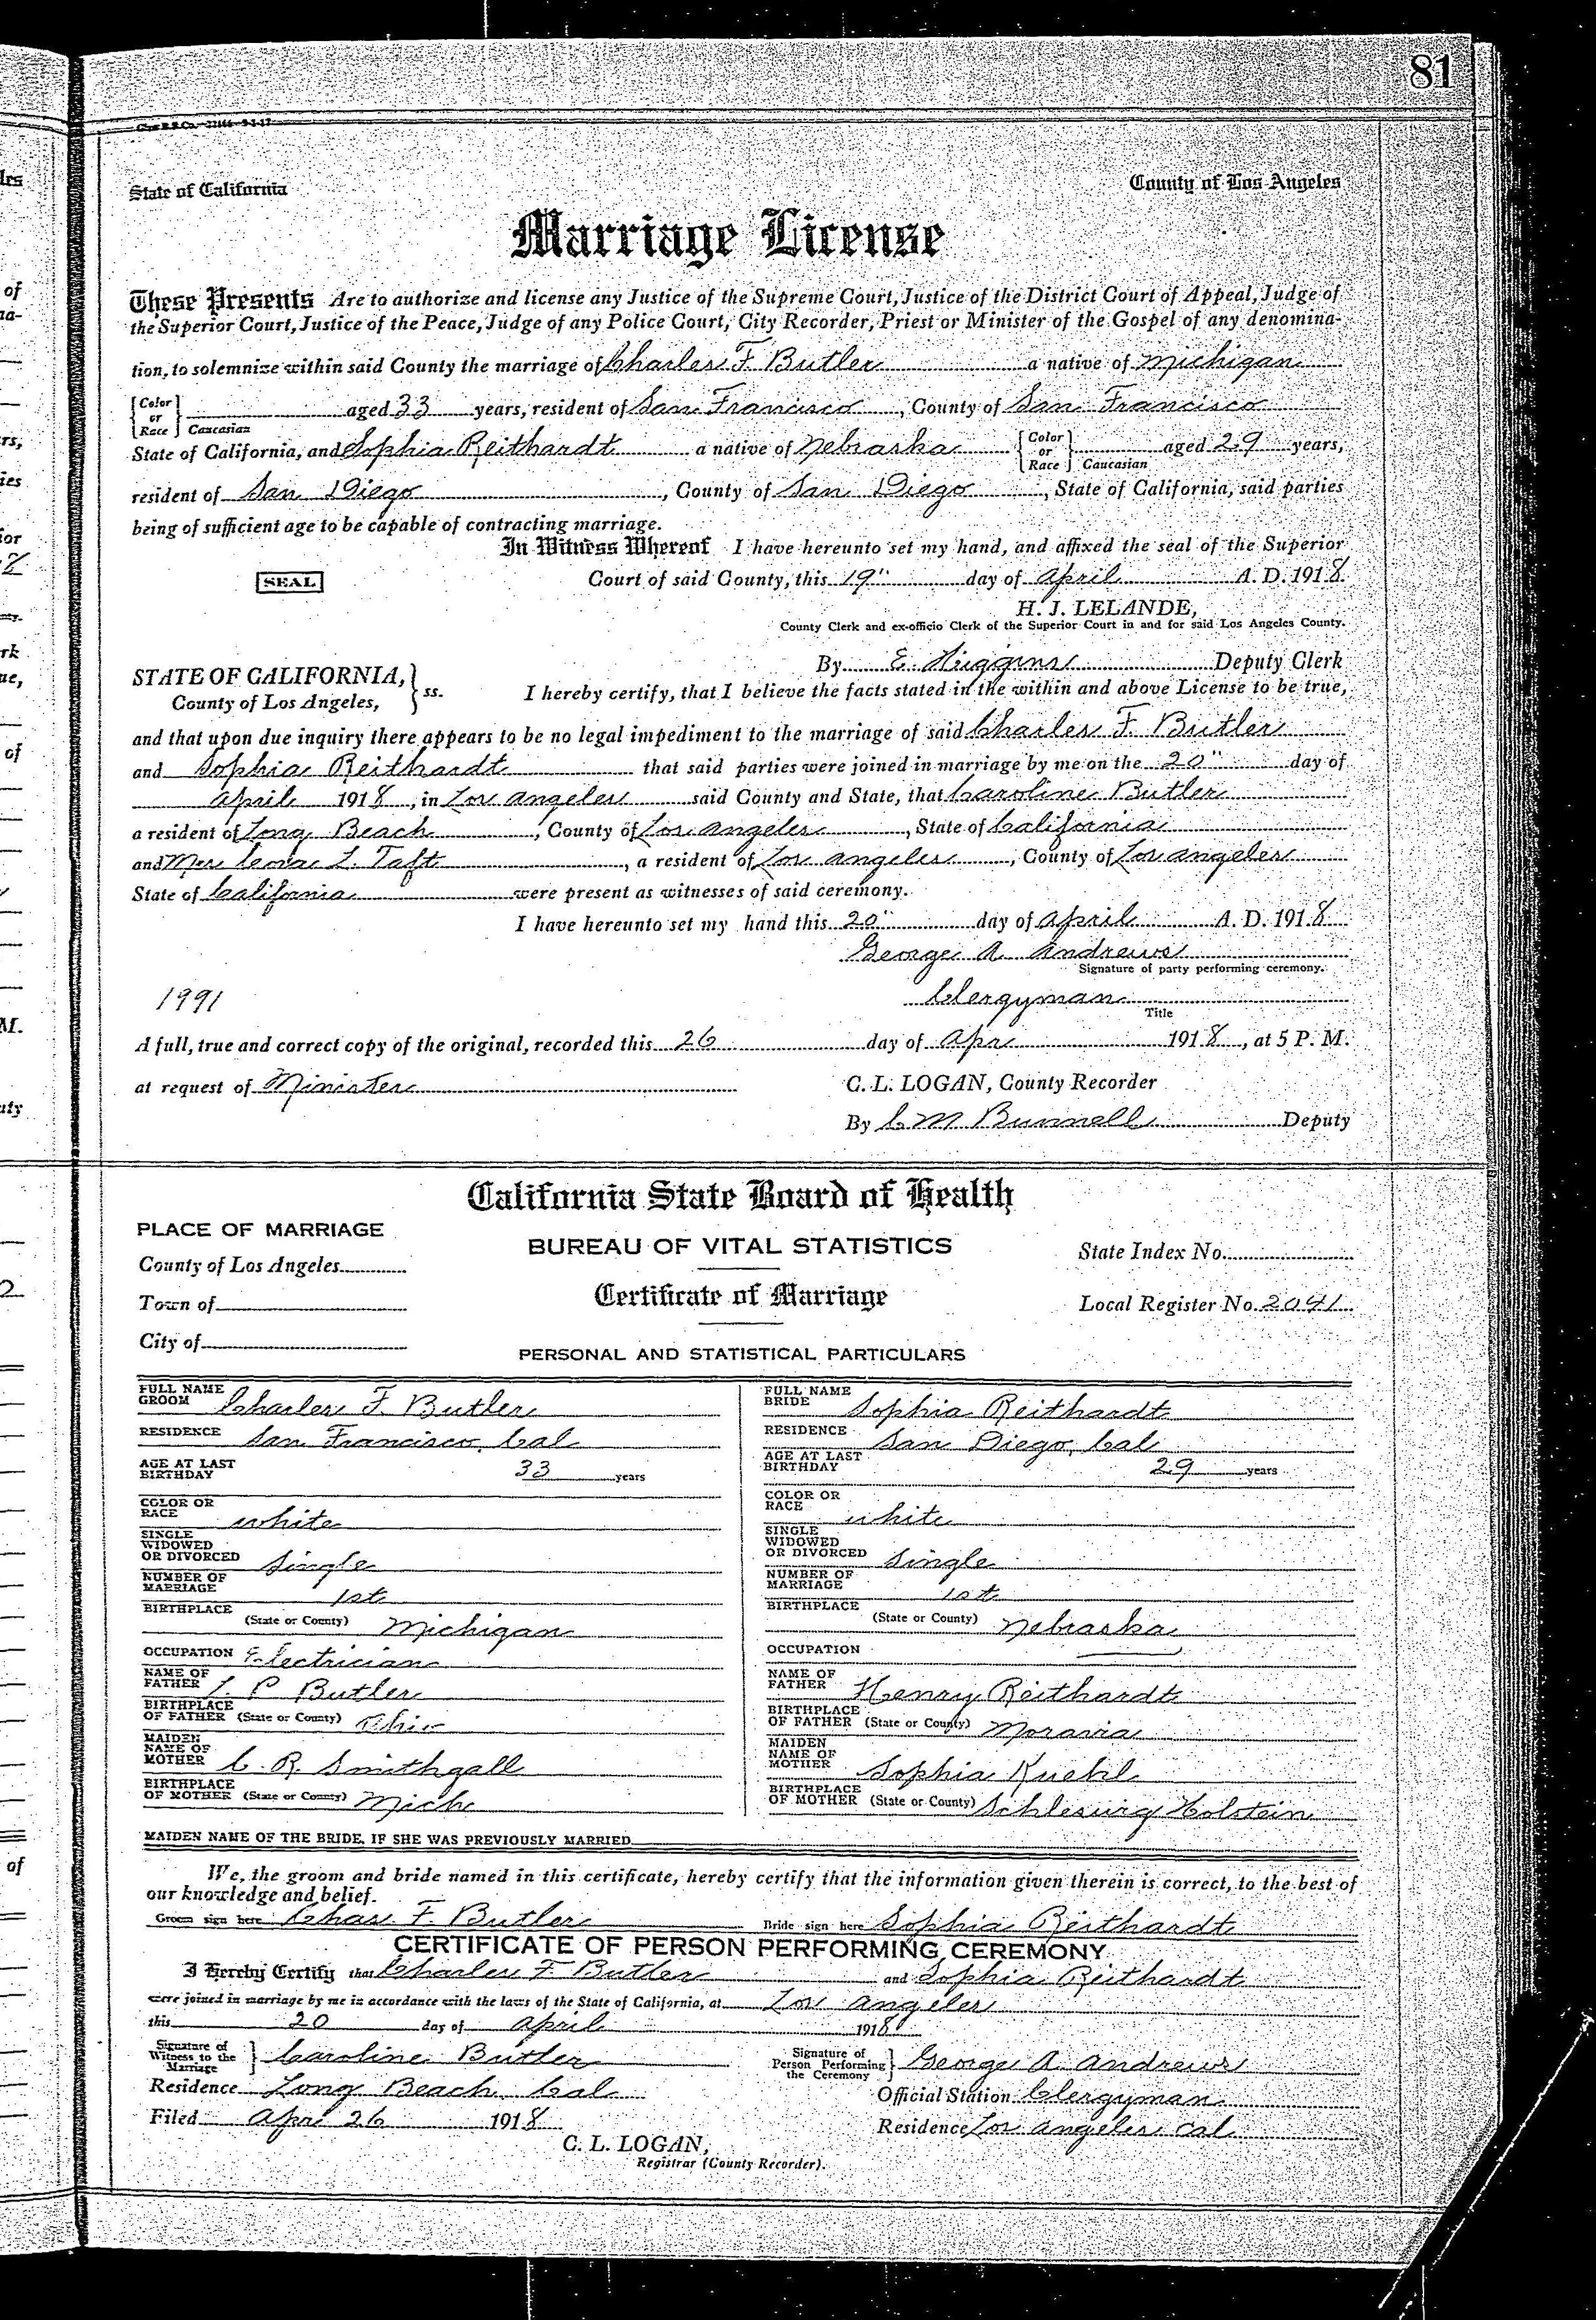 81
State of California County of Los Angeles
Marriage License
These Presents Are to authorize and license any Justice of the Supreme Court, Justice of the District Court of Appeal, Judge of
the Superior Court, Justice of the Peace, Judge of any Police Court, City Recorder, Priest or Minister of the Gospel of any denomina-
tion, to solemnize within said County the marriage of Charles F. Butler a native of Michigan
{Color or Race} Caucasian aged 33 years, resident of San Francisco, County of San Francisco
State of California, and Sophia Reithardt a native of Nebraska {Color or Race} Caucasian aged 29 years,
resident of San Diego, County of San Diego, State of California, said parties
being of sufficient age to be capable of contracting marriage.
In Witness Whereof I have hereunto set my hand, and affixed the seal of the Superior
SEAL Court of said County, this 19" day of April A. D. 1918
H. J. LELANDE,
County Clerk and ex-officio Clerk of the Superior Court in and for said Los Angeles County.
By E Huggins Deputy Clerk
STATE OF CALIFORNIA, County of Los Angeles, } ss. I hereby certify, that I believe the facts stated in the within and above License to be true,
and that upon due inquiry there appears to be no legal impediment to the marriage of said Charles F. Butler
and Sophia Reithardt that said parties were joined in marriage by me on the 20" day of
April 1918, in Los Angeles said County and State, that Caroline Butler
a resident of Long Beach, County of Los Angeles, State of California
and Mrs L. Taft, a resident of Los Angeles, County of Los Angeles
State of California were present as witnesses of said ceremony.
I have hereunto set my hand this 20" day of April A. D. 1918
George A. Andrews
Signature of party performing ceremony.
1991 Clergyman
Title
A full, true and correct copy of the original, recorded this 26 day of Apr 1918, at 5 P. M.
at request of Minister C. L. LOGAN, County Recorder
By C M Bunnell Deputy
California State Board of Health
PLACE OF MARRIAGE
BUREAU OF VITAL STATISTICS
State Index No.
County of Los Angeles
Certificate of Marriage
Town of
Local Register No. 2041
City of
PERSONAL AND STATISTICAL PARTICULARS
FULL NAME GROOM Charles F. Butler
RESIDENCE San Francisco, Cal
AGE AT LAST BIRTHDAY 33 years
COLOR OR RACE white
SINGLE WIDOWED OR DIVORCED Single
NUMBER OF MARRIAGE 1st
BIRTHPLACE (State or County) Michigan
OCCUPATION Electrician
NAME OF FATHER P Butler
BIRTHPLACE OF FATHER (State or County) Ohio
MAIDEN NAME OF MOTHER C. R. Smithgall
BIRTHPLACE OF MOTHER (State or County) Mich
FULL NAME BRIDE Sophia Reithardt
RESIDENCE San Diego, Cal
AGE AT LAST BIRTHDAY 29 years
COLOR OR RACE white
SINGLE WIDOWED OR DIVORCED Single
NUMBER OF MARRIAGE 1st
BIRTHPLACE (State or County) Nebraska
OCCUPATION
NAME OF FATHER Henry Reithardt
BIRTHPLACE OF FATHER (State or County) Moravia
MAIDEN NAME OF MOTHER Sophia Kuehl
BIRTHPLACE OF MOTHER (State or County) Schleswig Holstein
MAIDEN NAME OF THE BRIDE, IF SHE WAS PREVIOUSLY MARRIED
We, the groom and bride named in this certificate, hereby certify that the information given therein is correct, to the best of
our knowledge and belief.
Groom sign here Chas F. Butler Bride sign here Sophia Reithardt
CERTIFICATE OF PERSON PERFORMING CEREMONY
I Hereby Certify that Charles F. Butler and Sophia Reithardt
were joined in marriage by me in accordance with the laws of the State of California, at Los Angeles
this 20 day of April 1918
Signature of Witness to the Marriage } Caroline Butler Signature of Person Performing the Ceremony } George A. Andrews
Residence Long Beach Cal Official Station Clergyman
Filed Apr 26 1918 Residence Los Angeles Cal
C. L. LOGAN,
Registrar (County Recorder).